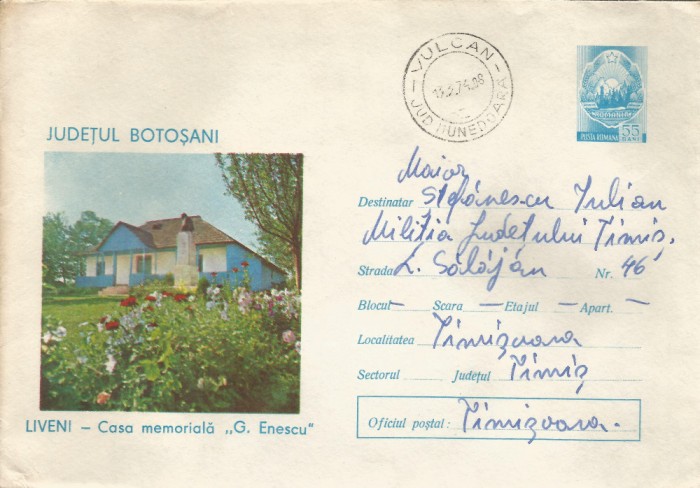 JUDEȚUL BOTOȘANI
LIVENI – Casa memorială „G. Enescu"
– VULCAN –
JUD HUNEDOARA
POSTA ROMANA
55 BANI
Maior
Destinatar Ștefănescu Iulian
Miliția Județului Timiș,
Strada L. Sălăjan Nr. 46
Blocul – Scara – Etajul – Apart. –
Localitatea Timișoara
Sectorul Județul Timiș
Oficiul poștal: Timișoara.